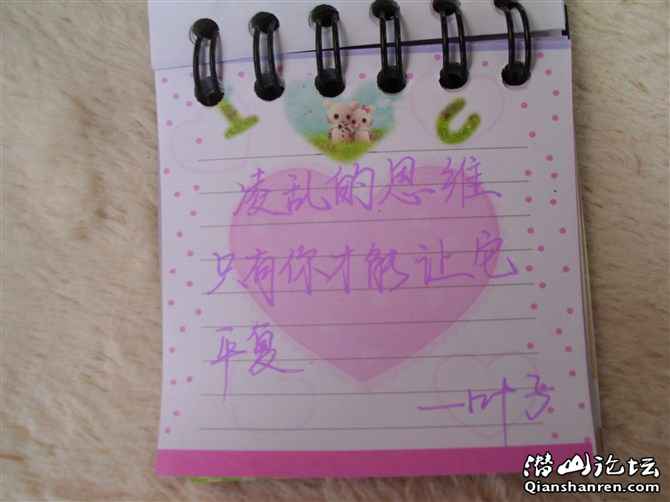 I U
凌乱的思维
只有你才能让它
平复
—叶子
潜山论坛
Qianshanren.com